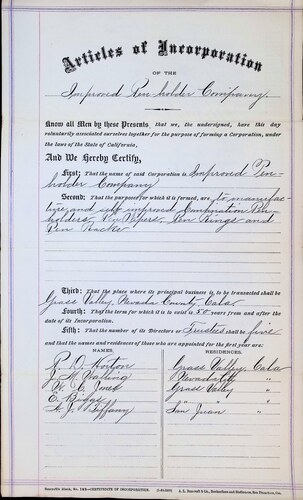 Articles of Incorporation
OF THE
Improved Pen holder Company.
Know all Men by these Presents, that we, the undersigned, have this day
voluntarily associated ourselves together for the purpose of forming a Corporation, under
the laws of the State of California,
And We Hereby Certify,
First: That the name of said Corporation is Improved Pen-
holder Company
Second: That the purposes for which it is formed, are to manufac-
ture and sell improved Combination Pen
holders, Pen Rings and
Pen Racks
Third: That the place where its principal business is to be transacted shall be
Grass Valley, Nevada County, Cala
Fourth: That the term for which it is to exist is 50 years from and after the
date of its incorporation.
Fifth: That the number of its Directors or Trustees shall be five
and that the names and residences of those who are appointed for the first year are:
NAMES. RESIDENCES.
Horton Grass Valley, Cala
M. Nevada City "
Grass Valley "
E. "
Tiffany San Juan "